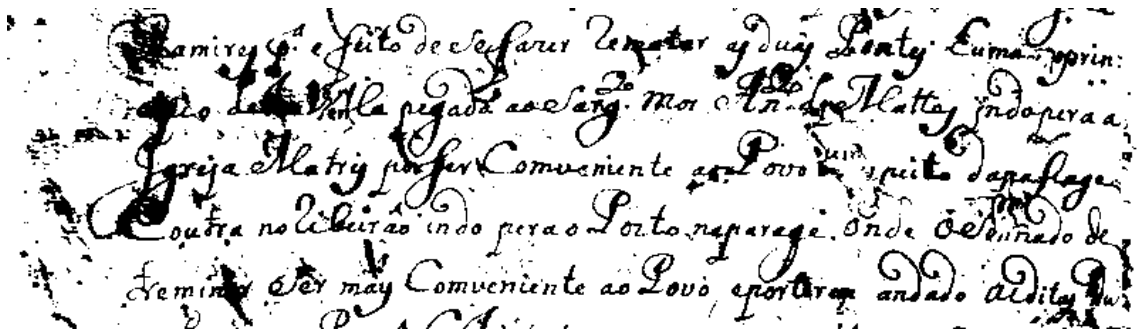 Ramires p.ª efeito de se fazer Rematar as duas Pontes huma no prin:
cipio da Villa pegada ao Sarg.to Mor An.to de Mattos indo pera a
Igreja Matris por ser Comveniente ao Povo respeito da pasage
Eoutra no Ribeirão indo pera o Porto naparage. Onde o Senado de
treminar eSer mais Comveniente ao Povo, e por terem andado as ditas